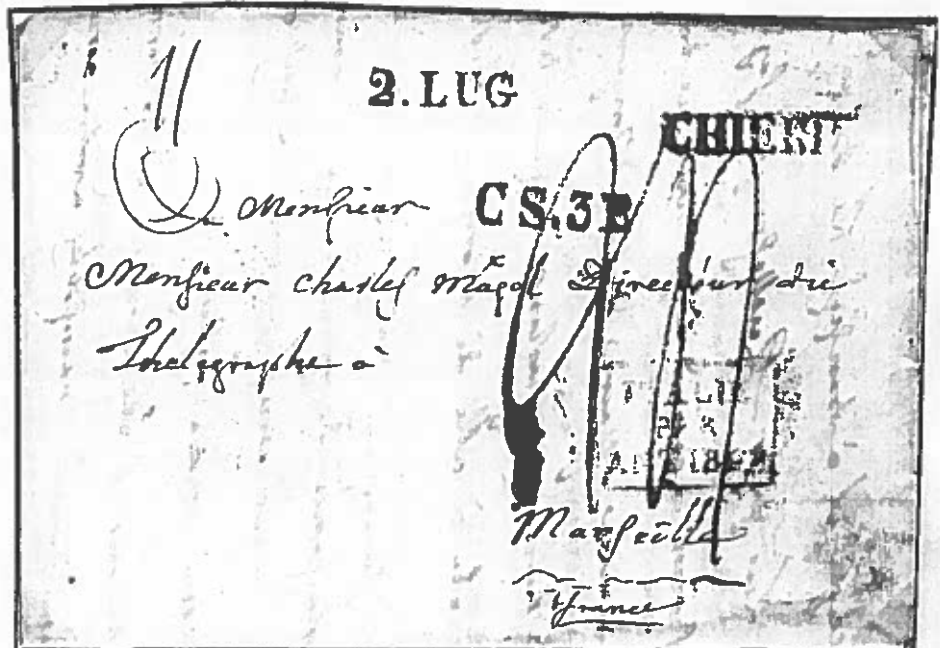 11
2.LUG
CHIERI
CS.3E
A Monsieur
Monsieur Charles Magol Directeur du
Thelegraphe à
Marseille
france